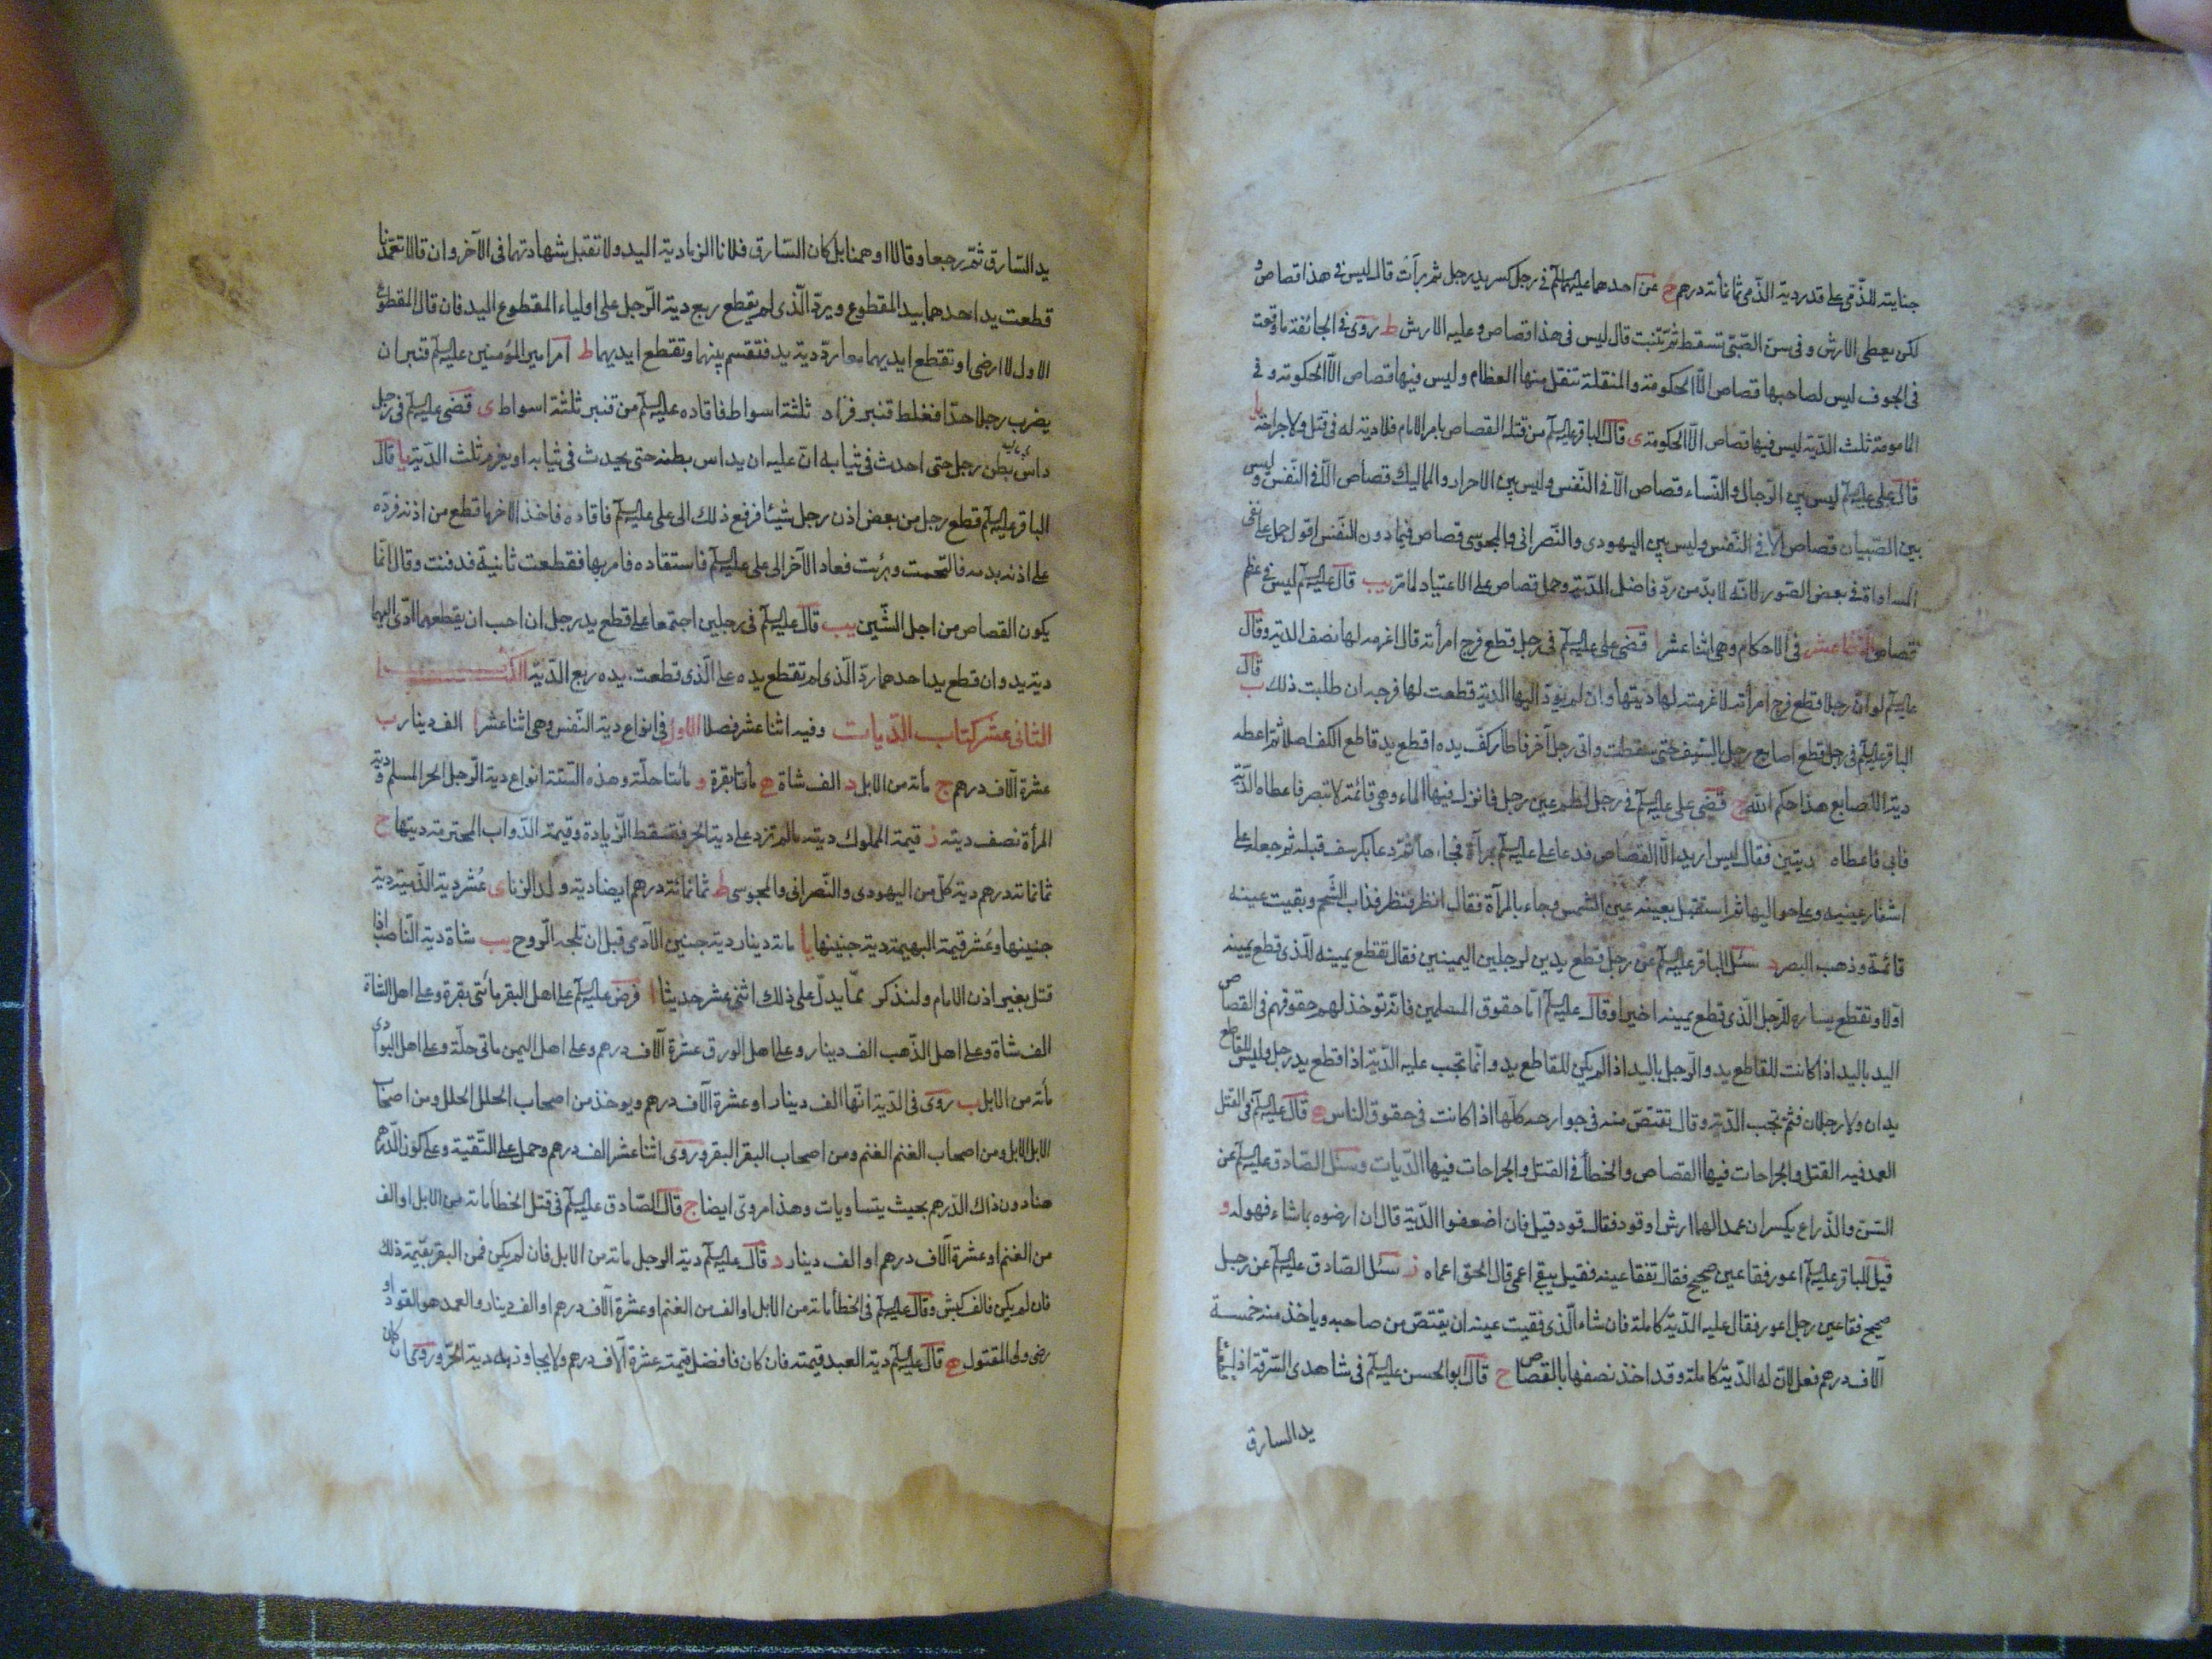 جنايته للذّمي على قدر دية الذّمي ثمانمائة درهم ح عن احدهما عليهما السلم في رجل كسر يد رجل ثم برأت قال ليس في هذا قصاص و
لكن يعطى الارش وفي سن الصّبّي تسقط ثم تنبت قال ليس في هذا قصاص وعليه الارش ط روى في الجائفة ما وقعت
في الجوف ليس لصاحبها قصاص الّا الحكومة والمنقلة تنقل منها العظام وليس فيها قصاص الّا الحكومة وفي
المامومة ثلث الدّية ليس فيها قصاص الّا الحكومة ى قال الباقر عليه السلم من قتله القصاص بامر الامام فلا دية له في قتل ولا جراحة يا
قال على عليه السلم ليس بين الرّجال والنّساء قصاص الّا في النّفس وليس بين الاحرار والمماليك قصاص الّا في النّفس وليس
بين الصّبيان قصاص الّا في النّفس وليس بين اليهودى والنّصرانى والمجوسى قصاص فيما دون النّفس اقول حمل على نفى
المساواة في بعض الصّور لانّه لا بدّ من ردّ فاضل الدّية وحمل قصاص على الاعتياد لما مرّ يب قال عليه السلم ليس في عظم
قصاص الثانى عشر في الاحكام وهي اثنا عشر ا قضى على عليه السلم في رجل قطع فرج امرأته قال اغرمه لها نصف الدّية وقال
عليه السلم لو انّ رجلا قطع فرج امرأته لاغرمته لها ديتها وان لم يؤدّ اليها الدّية قطعت لها فرجه ان طلبت ذلك ب قال
الباقر عليه السلم في رجل قطع اصابع رجل بالسّيف حتى سقطت واتى رجل آخر فاطار كفّ يده اقطع يد قاطع الكف اصلا ثم اعطه
دية الاصابع هذا حكم الله ج قضى على عليه السلم في رجل لطم عين رجل فانزل فيها الماء وهي قائمة لا تبصر فاعطاه الدّية
فابى فاعطاه ديتين فقال ليس اريد الّا القصاص فدعا على عليه السلم بمرآة فحماها ثمّ دعا بكرسف فبلّه ثم جعله على
اشفار عينيه وعلى حواليها ثم استقبل بعينه عين الشّمس وجاء بالمرآة فقال انظر فنظر فذاب الشّحم وبقيت عينه
قائمة وذهب البصر د سئل الباقر عليه السلم عن رجل قطع يدين لرجلين اليمينين فقال تقطع يمينه للّذى قطع يمينه
اوّلا وتقطع يساره للرّجل الّذى قطع يمينه اخيرا وقال عليه السلم امّا حقوق المسلمين فانّه توخذ لهم حقوقهم في القصاص
اليد باليد اذا كانت للقاطع يد والرّجل باليد اذا لم يكن للقاطع يد وانّما تجب عليه الدّية اذا قطع يد رجل وليس للقاطع
يدان ولا رجلان فثم تجب الدّية وقال تقتصّ منه في جوارحه كلّها اذا كانت في حقوق الناس ه قال عليه السلم في القتل
العمد فيه القتل والجراحات فيها القصاص والخطأ في القتل والجراحات فيها الدّيات وسئل الصّادق عليه السلم عن
السّن والذّراع يكسران عمدا لهما ارش او قود فقال قود قيل فان اضعفوا الدّية قال ان ارضوه بما شاء فهو له و
قيل للباقر عليه السلم اعور فقا عين صحيح فقال تفقا عينه فقيل يبقى اعمى قال الحق اعماه ز سئل الصّادق عليه السلم عن رجل
صحيح فقا عين رجل اعور فقال عليه الدّية كاملة فان شاء الّذى فقيت عينه ان يقتصّ من صاحبه وياخذ منه خمسة
آلاف درهم فعل لانّ له الدّية كاملة وقد اخذ نصفها بالقصاص ح قال ابو الحسن عليه السلم في شاهدى السّرقة اذا
يد السارق
يد السّارق ثمّ رجعا وقالا اوهمنا بل كان السّارق فلانا الزما دية اليد ولا تقبل شهادتهما في الآخر وان قالا تعمّدنا
قطعت يد احدهما بيد المقطوع ويردّ الّذى لم يقطع ربع دية الرّجل على اولياء المقطوع اليد فان قال المقطوع
الاول لا ارضى او تقطع ايديهما معا ردّ دية يد فتقسم بينهما وتقطع ايديهما ط امر امير المؤمنين عليه السلم قنبر ان
يضرب رجلا حدّا فغلط قنبر فزاد ثلثة اسواط فاقاده عليه السلم من قنبر ثلثة اسواط ى قضى عليه السلم في رجل
داس بطن رجل حتى احدث في ثيابه انّ عليه ان يداس بطنه حتى يحدث في ثيابه او يغرم ثلث الدّية يا قال
الباقر عليه السلم قطع رجل من بعض اذن رجل شيئا فرفع ذلك الى على عليه السلم فاقاده فاخذ الآخر ما قطع من اذنه فردّه
على اذنه بدمه فالتحمت وبرئت فعاد الآخر الى على عليه السلم فاستقاده فامر بها فقطعت ثانية فدفنت وقال انّما
يكون القصاص من اجل الشّين يب قال عليه السلم في رجلين اجتمعا على قطع يد رجل ان احب ان يقطعهما ادّى اليهما
دية يد وان قطع يد احدهما ردّ الّذى لم تقطع يده على الّذى قطعت يده ربع الدّية الكتاب
الثانى عشر كتاب الدّيات وفيه اثنا عشر فصلا الاول في انواع دية النّفس وهي اثنا عشر ا الف دينار ب
عشرة آلاف درهم ج مأة من الابل د الف شاة ه مأتا بقرة و مائتا حلّة وهذه السّتّة انواع دية الرّجل الحر المسلم ودية
المرأة نصف ديته ز قيمة المملوك ديته ما لم تزد على دية الحر فتسقط الزّيادة وقيمة الدّواب المحترمة ديتها ح
ثمانمائة درهم دية كلّ من اليهودى والنّصرانى والمجوسى ط ثمانمائة درهم ايضا دية ولد الزنا ى عُشر دية الذّميّة دية
جنينها وعُشر قيمة البهيمة دية جنينها يا مائة دينار دية جنين الآدمى قبل ان تلجه الرّوح يب شاة دية النّاصب اذا
قتل بغير اذن الامام ولنذكر ممّا يدلّ على ذلك اثنى عشر حديثا ا فرض عليه السلم على اهل البقر مائتى بقرة وعلى اهل الشاة
الف شاة وعلى اهل الذّهب الف دينار وعلى اهل الورق عشرة آلاف درهم وعلى اهل اليمن مائتى حلّة وعلى اهل البوادى
مأة من الابل ب روى في الدّية انّها الف دينار او عشرة آلاف درهم ويوخذ من اصحاب الحلل الحلل ومن اصحاب
الابل الابل ومن اصحاب الغنم الغنم ومن اصحاب البقر البقر وروى اثنا عشر الف درهم وحمل على التّقية وعلى كون الدّرهم
هنا دون ذاك الدّرهم بحيث يتساويات وهذا مروىّ ايضا ج قال الصّادق عليه السلم في قتل الخطأ مائة من الابل او الف
من الغنم او عشرة آلاف درهم او الف دينار د قال عليه السلم دية الرجل مائة من الابل فان لم يكن فمن البقر بقيمة ذلك
فان لم يكن فالف كبش وقال عليه السلم في الخطأ مائة من الابل او الف من الغنم او عشرة آلاف درهم او الف دينار والعمد هو القود او
رضى ولى المقتول ه قال عليه السلم دية العبد قيمته فان كان فافضل قيمته عشرة آلاف درهم ولا يجاوز به دية الحرّ وروى